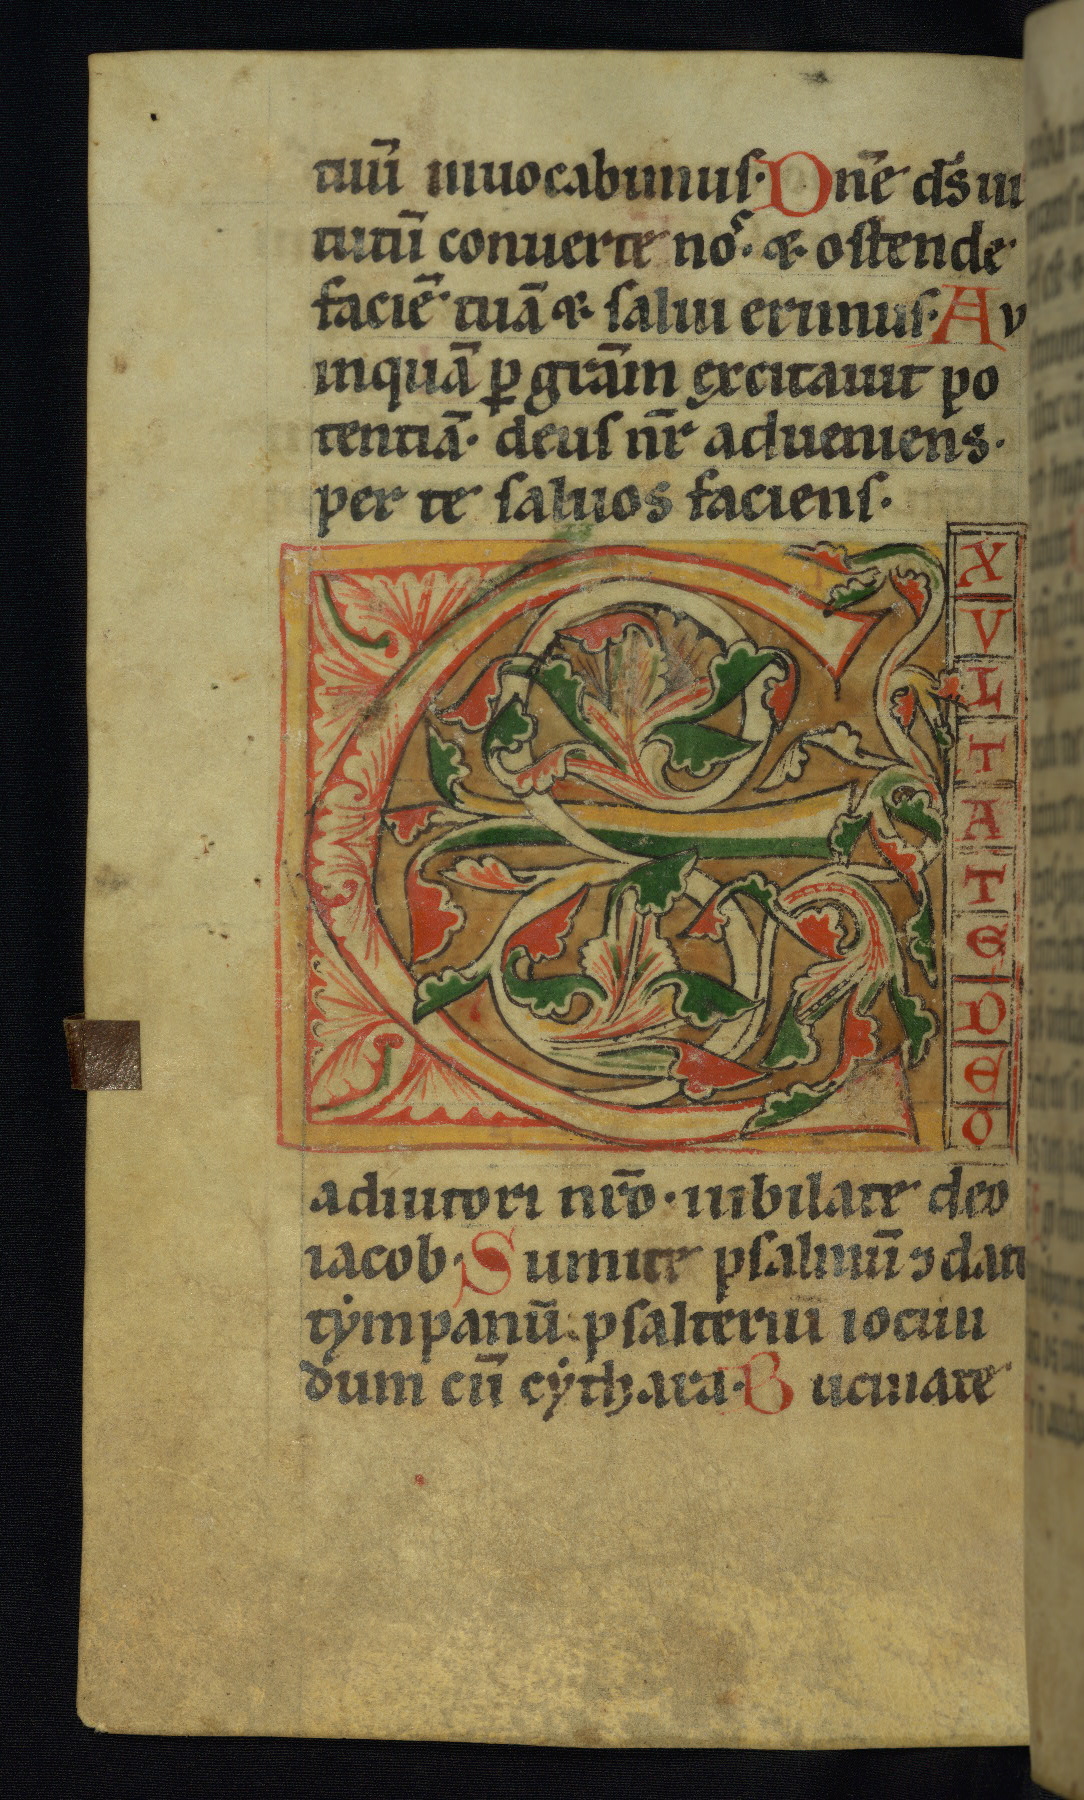 tuū inuocabimus. Dn̄e ds̄ uir
tutū conuerte nos. & ostende
faciē tuā & salui erimus. Au
inquā ꝑ grām excitauit po
tentiā. deus nr̄ adueniens.
per te saluos faciens.
EXVLTATE DEO
adiutori nr̄o. iubilate deo
iacob. Sumite psalmū ⁊ date
tẏmpanū. psalteriū iocun
dum cū cẏthara. Bucinate